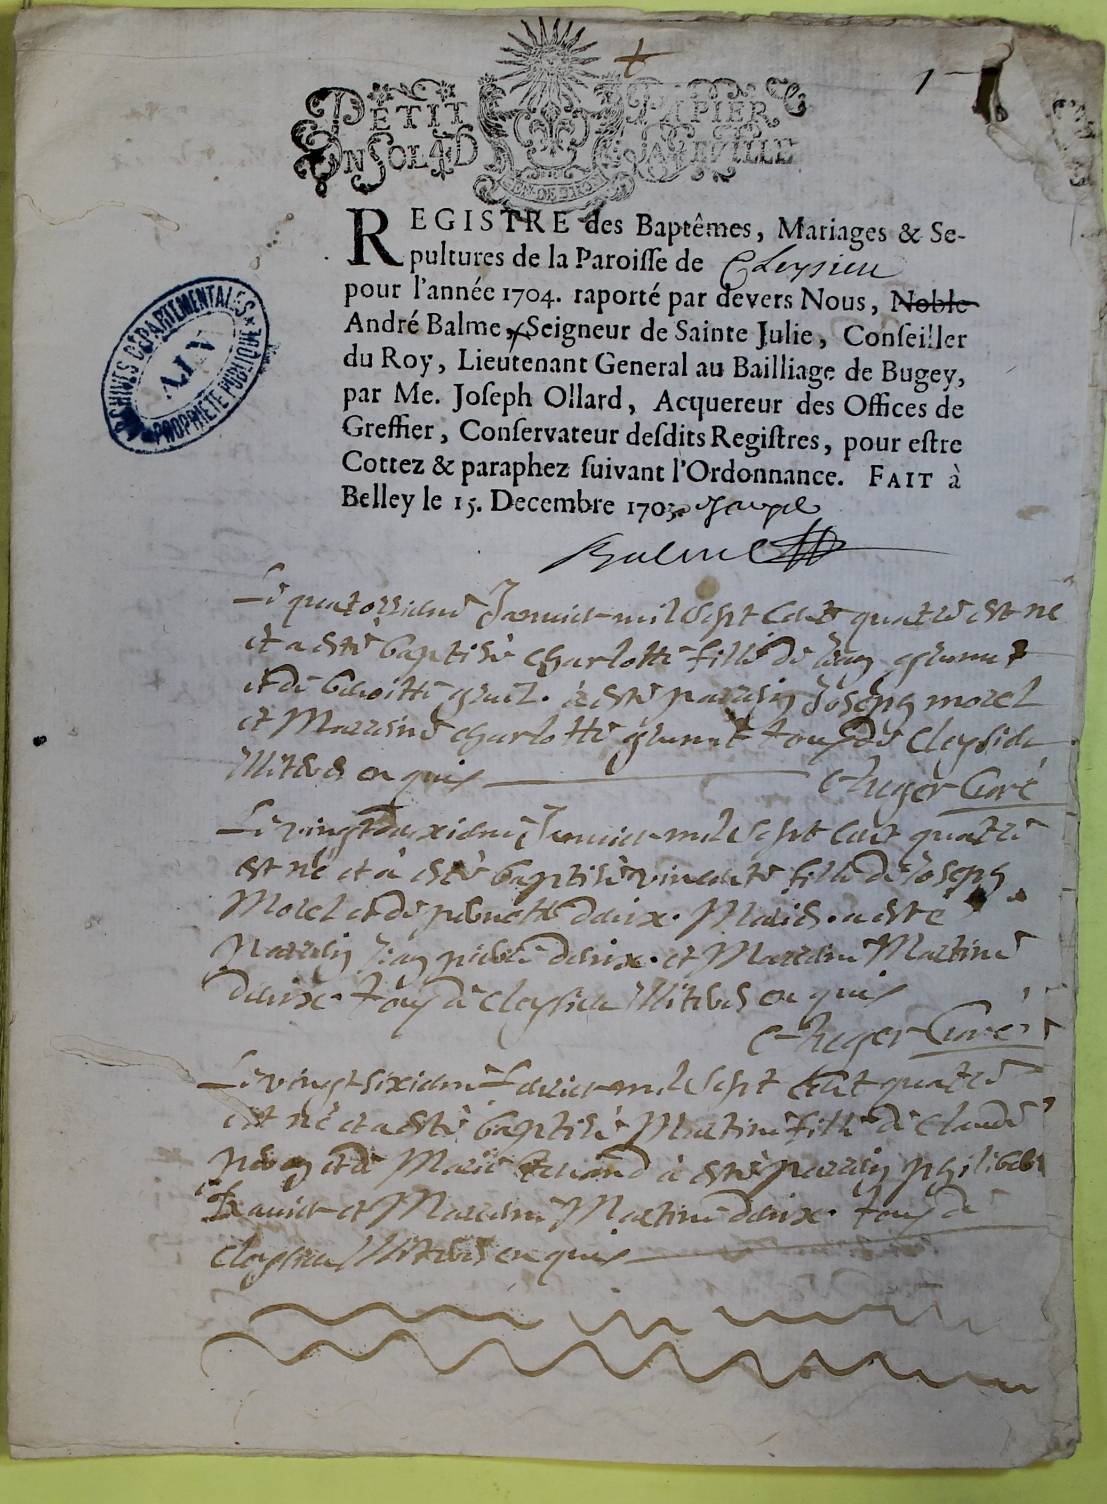 1
PETIT PAPIER
UN SOL 4 D LA FEUILLE
REGISTRE des Baptêmes, Mariages & Se-
pultures de la Paroisse de Cleysieu
pour l'année 1704. raporté par devers Nous, Noble
André Balme, Seigneur de Sainte Julie, Conseiller
du Roy, Lieutenant General au Bailliage de Bugey,
par Me. Joseph Ollard, Acquereur des Offices de
Greffier, Conservateur desdits Registres, pour estre
Cottez & paraphez suivant l'Ordonnance. FAIT à
Belley le 15. Decembre 1703.
Balme
ARCHIVES DÉPARTEMENTALES
AIN
PROPRIÉTÉ PUBLIQUE
Le quatorzieme Janvier mil sept cent quatre est né
et a esté baptisé charlotte fille de Jean
et de benoitte a esté parrain Joseph morel
et Marraine charlotte tous de Cleysieu
illiteres enquis
Auger Curé
Le vingt deuxieme Janvier mil sept cent quatre
est né et a esté baptisé vincente fille de Joseph
Morel et de pernette daux. Mariés. a esté
parrain Jean daux. et Marraine Martine
daux. tous de Cleysieu illiteres enquis
Auger Curé
Le vingt sixieme fevrier mil sept cent quatre
est né et a esté baptisé Martine fille de Claude
et de Marie a esté parrain philibert
et Marraine Martine daux. tous de
Cleysieu illiteres enquis